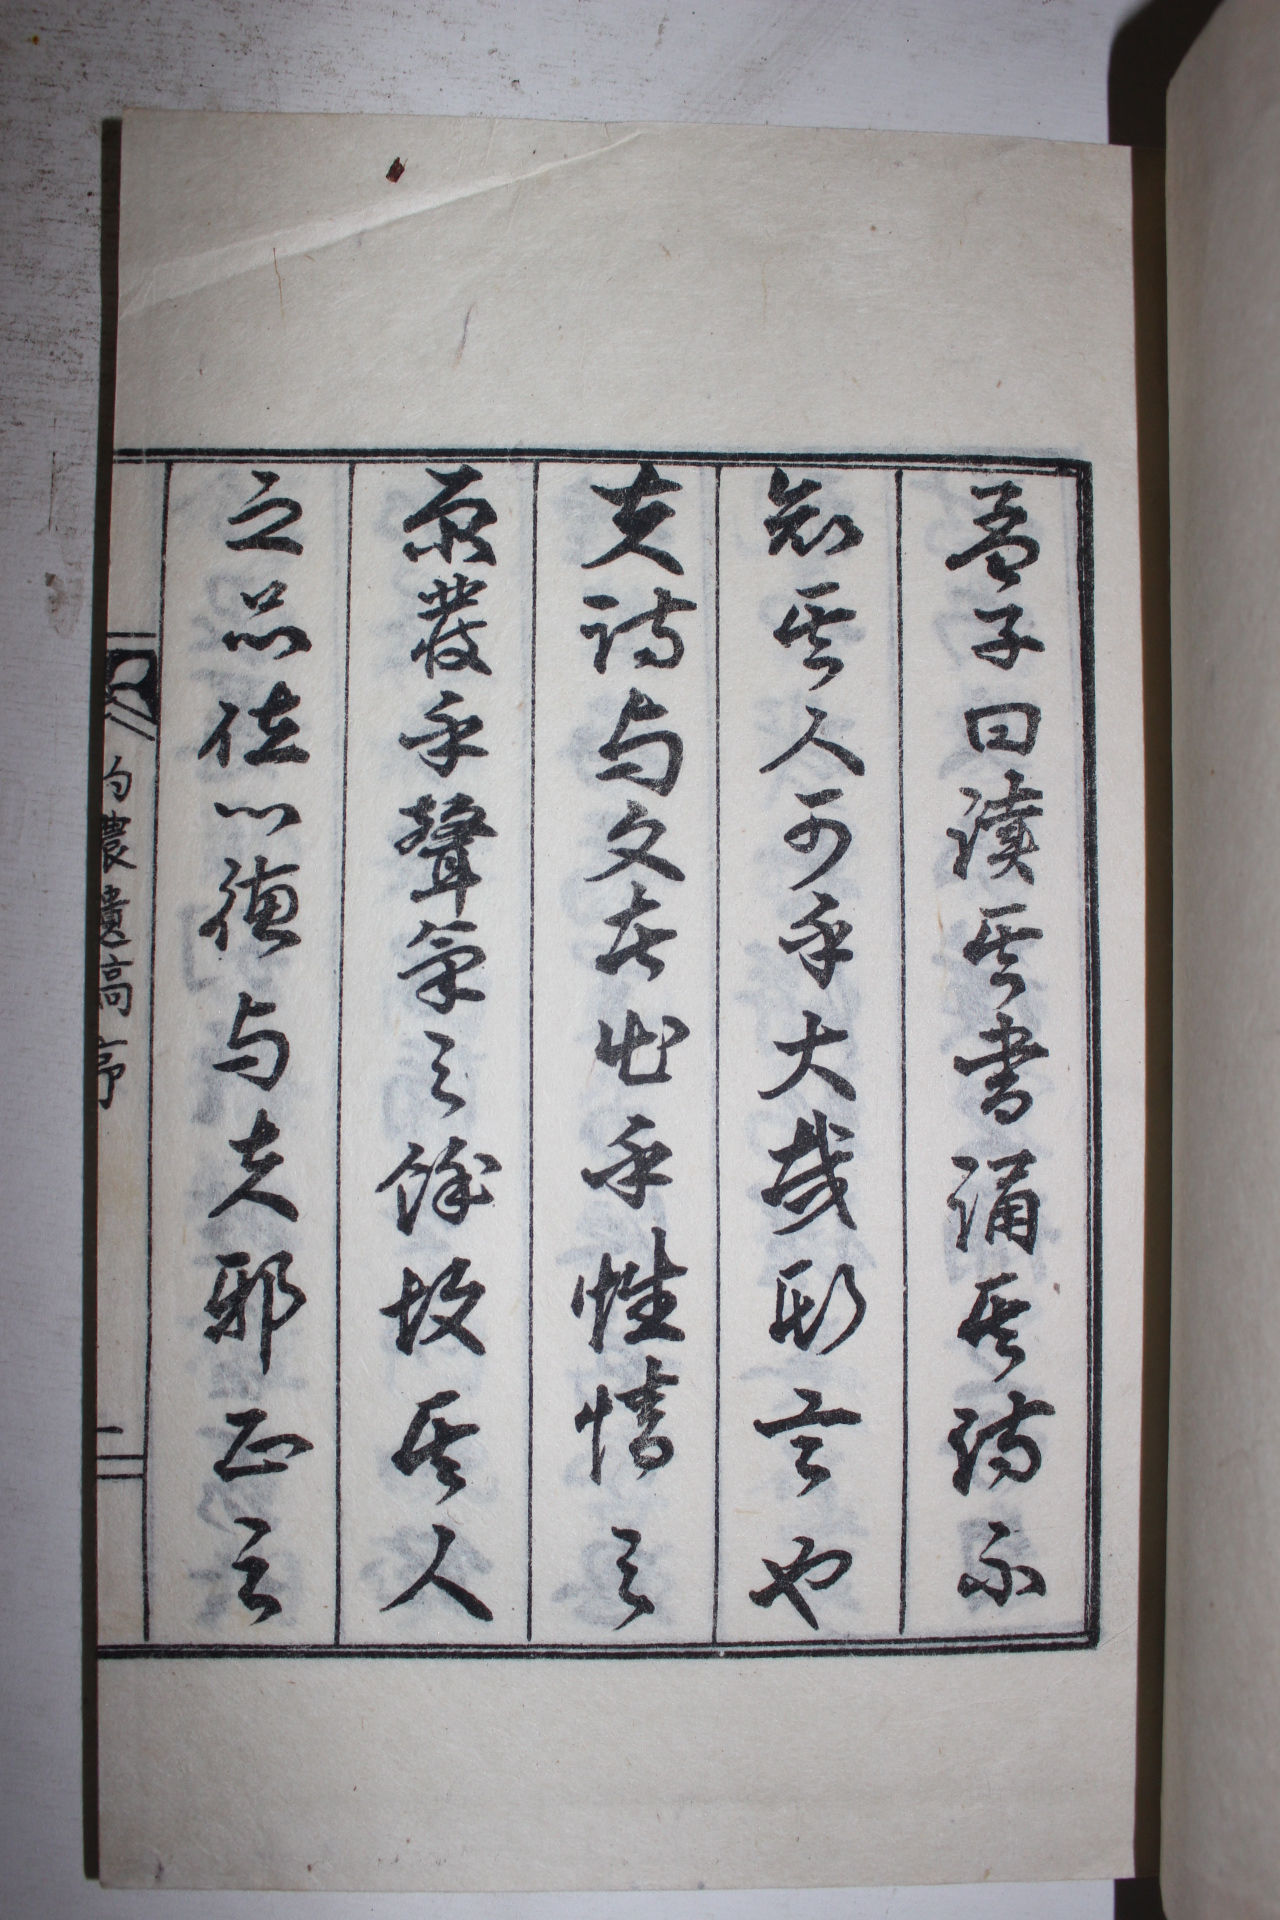 孟子曰讀其書誦其詩不
知其人可乎大哉斯言也
夫詩与文者出乎性情之
原發乎聲氣之餘故其人
之品心德与夫邪正
農遺稿序
一